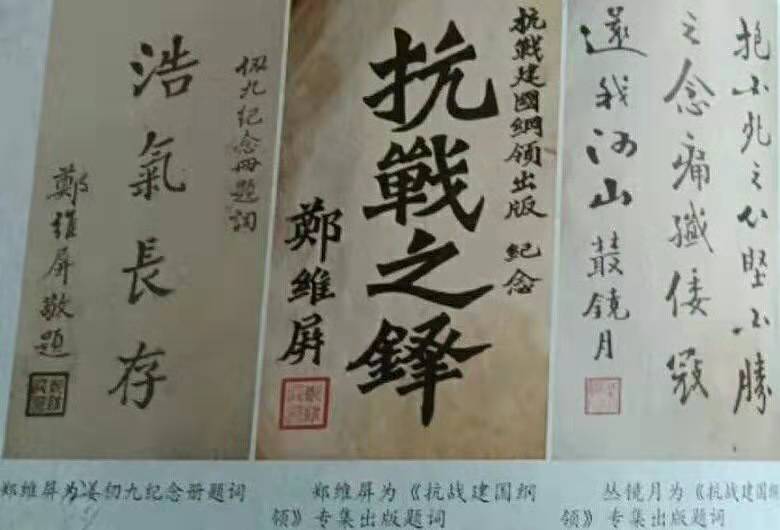 仞九纪念册题词
浩氣長存
鄭維屏敬題
郑维屏为姜仞九纪念册题词
抗戰建國綱領出版 纪念
抗戰之鐸
鄭維屏
郑维屏为《抗战建国纲
领》专集出版题词
抱必死之心堅必勝
之念痛殲倭寇
還我河山 叢镜月
丛镜月为《抗战建国纲
领》专集出版题词